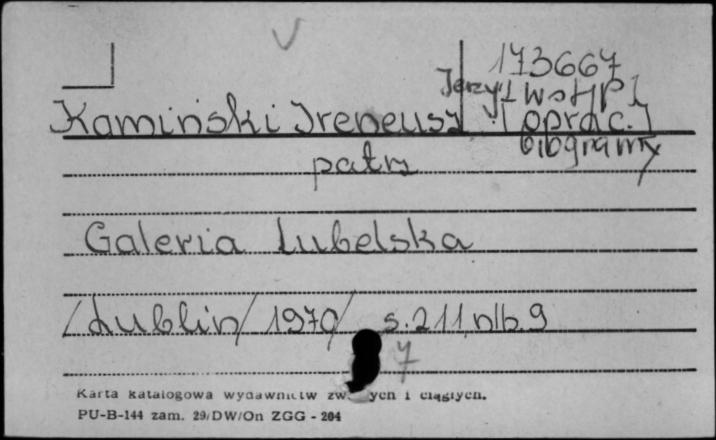 173667
Kamiński Ireneusz Jerzy: [wstęp i
oprac.]
biogramy
patrz
Galeria Lubelska
/Lublin/ 1970/ s. 211, nlb. 9
7
Karta katalogowa wydawnictw zw ych i ciągłych.
PU-B-144 zam. 29/DW/On ZGG - 204